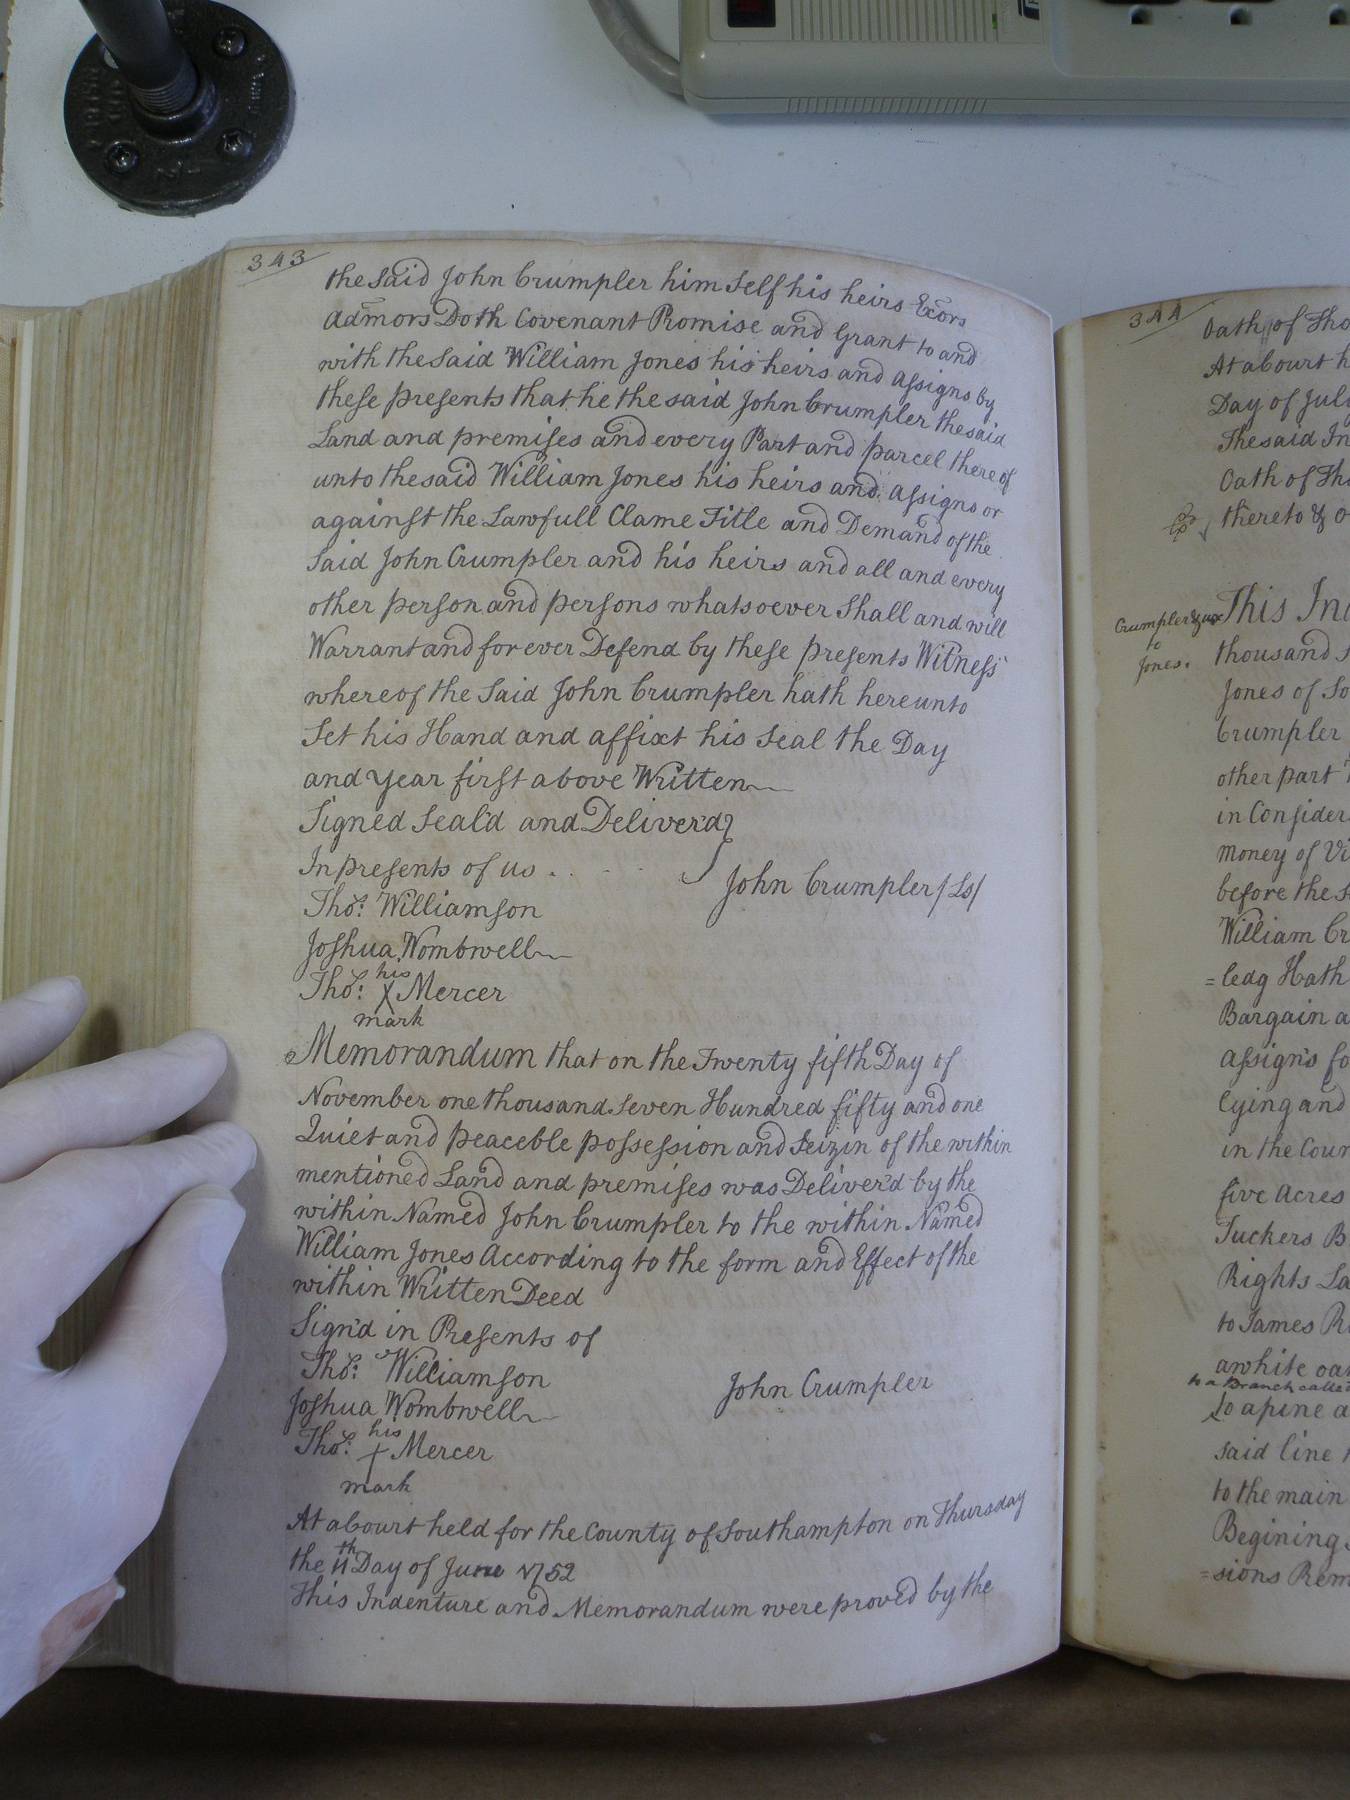 343
the Said John Crumpler him Self his heirs Exors
Admors Doth Covenant Promise and Grant to and
with the Said William Jones his heirs and assigns by
these presents that he the said John Crumpler the said
Land and premises and every Part and parcel there of
unto the said William Jones his heirs and assigns or
against the Lawfull Clame Title and Demand of the
Said John Crumpler and his heirs and all and every
other person and persons whatsoever Shall and will
Warrant and for ever Defend by these presents Witness
whereof the Said John Crumpler hath hereunto
Set his Hand and affixt his Seal the Day
and Year first above Written
Signed Seal'd and Deliver'd
In presents of us
John Crumpler (Ls)
Tho.s Williamson
Joshua Wombwell
Tho.s his X Mercer
mark
Memorandum that on the Twenty fifth Day of
November one thousand Seven Hundred fifty and one
Quiet and peaceble possession and Seizin of the within
mentioned Land and premises was Deliver'd by the
within Named John Crumpler to the within Named
William Jones According to the form and Effect of the
within Written Deed
Sign'd in Presents of
Tho.s Williamson
John Crumpler
Joshua Wombwell
Tho.s his + Mercer
mark
At a Court held for the County of Southampton on Thursday
the 11th Day of June 1752
This Indenture and Memorandum were proved by the
344
Oath of Tho
At a Court h
Day of July
The said In
Oath of Tho
thereto & o
Crumpler & ux
to
Jones.
This Ind
thousand s
Jones of So
Crumpler
other part
in Consider
Money of Vi
before the s
William Cr
=ledg Hath
Bargain a
assigns fo
lying and
in the Coun
five Acres
Tuckers B
Rights La
to James Ri
a white oa
to a Branch called
to a pine a
said line
to the main
Begining
=sions Rem